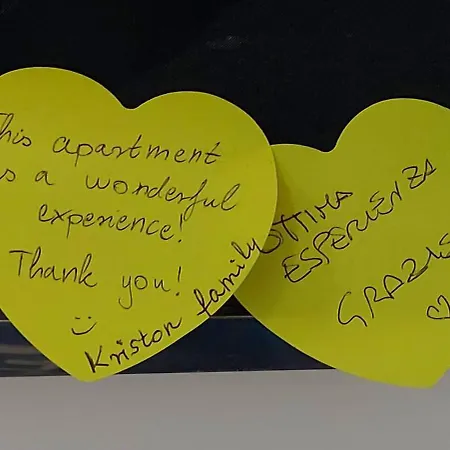 This apartment
is a wonderful
experience!
Thank you!
Kriston family
OTTIMA
ESPERIENZA
GRAZIE